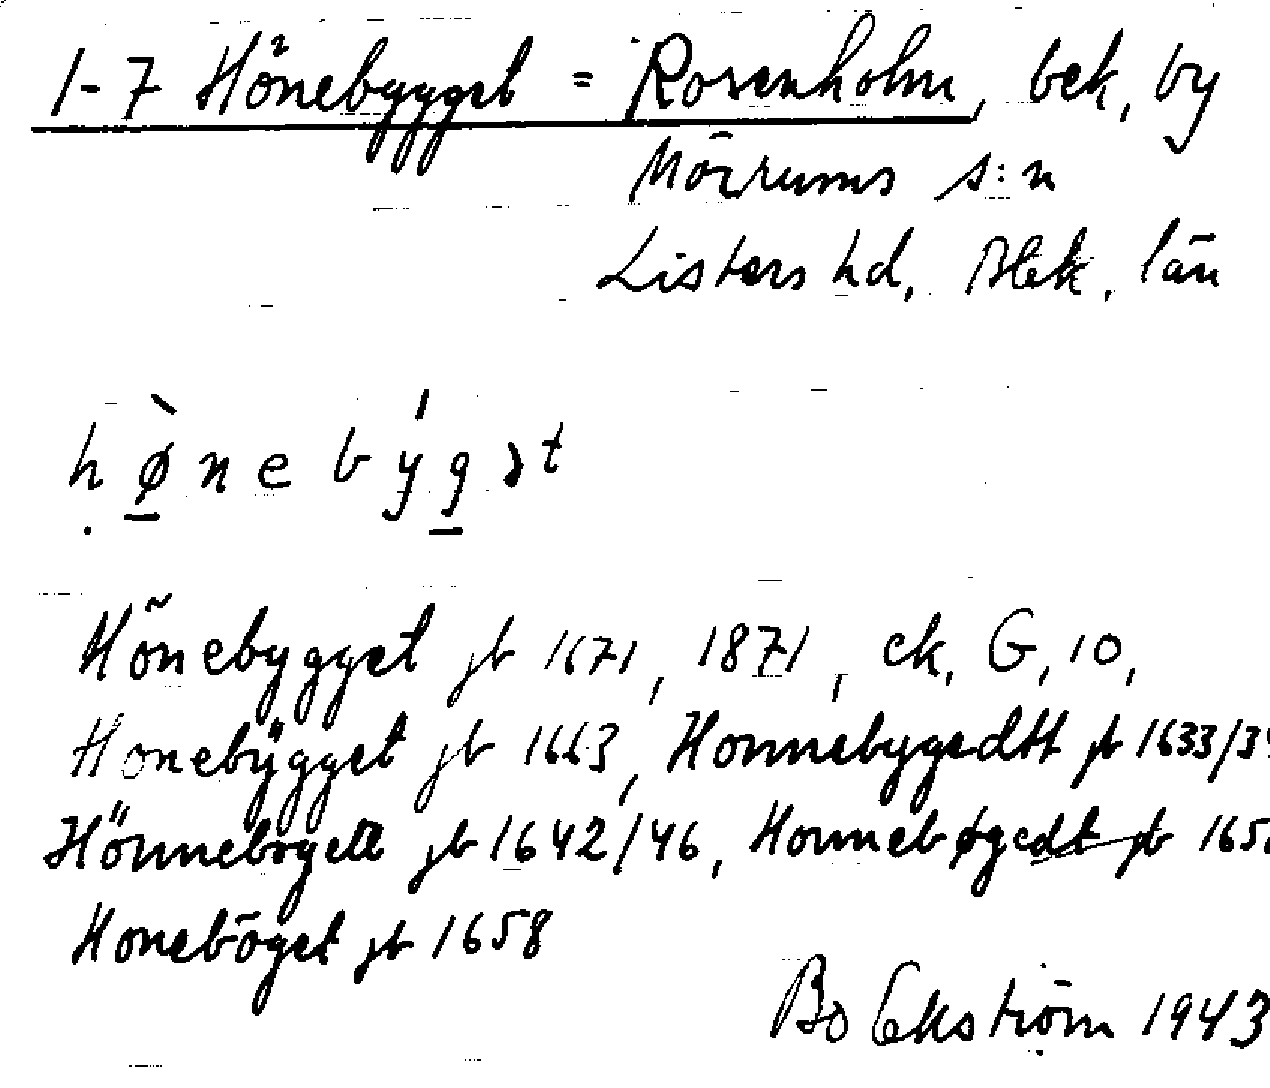 1-7 Hönebygget = Rosenholm, bek, by
Mörrums s:n
Listers hd, Blek. län
hønebygət
Hönebygget jb 1671, 1871, ek, G, 10,
Honebÿgget jb 1663, Honnebygedtt jb 1633/34
Hönnebygett jb 1642/46, Honnebøgedt jb
Honeböget jb 1658
Bo Ekström 1943